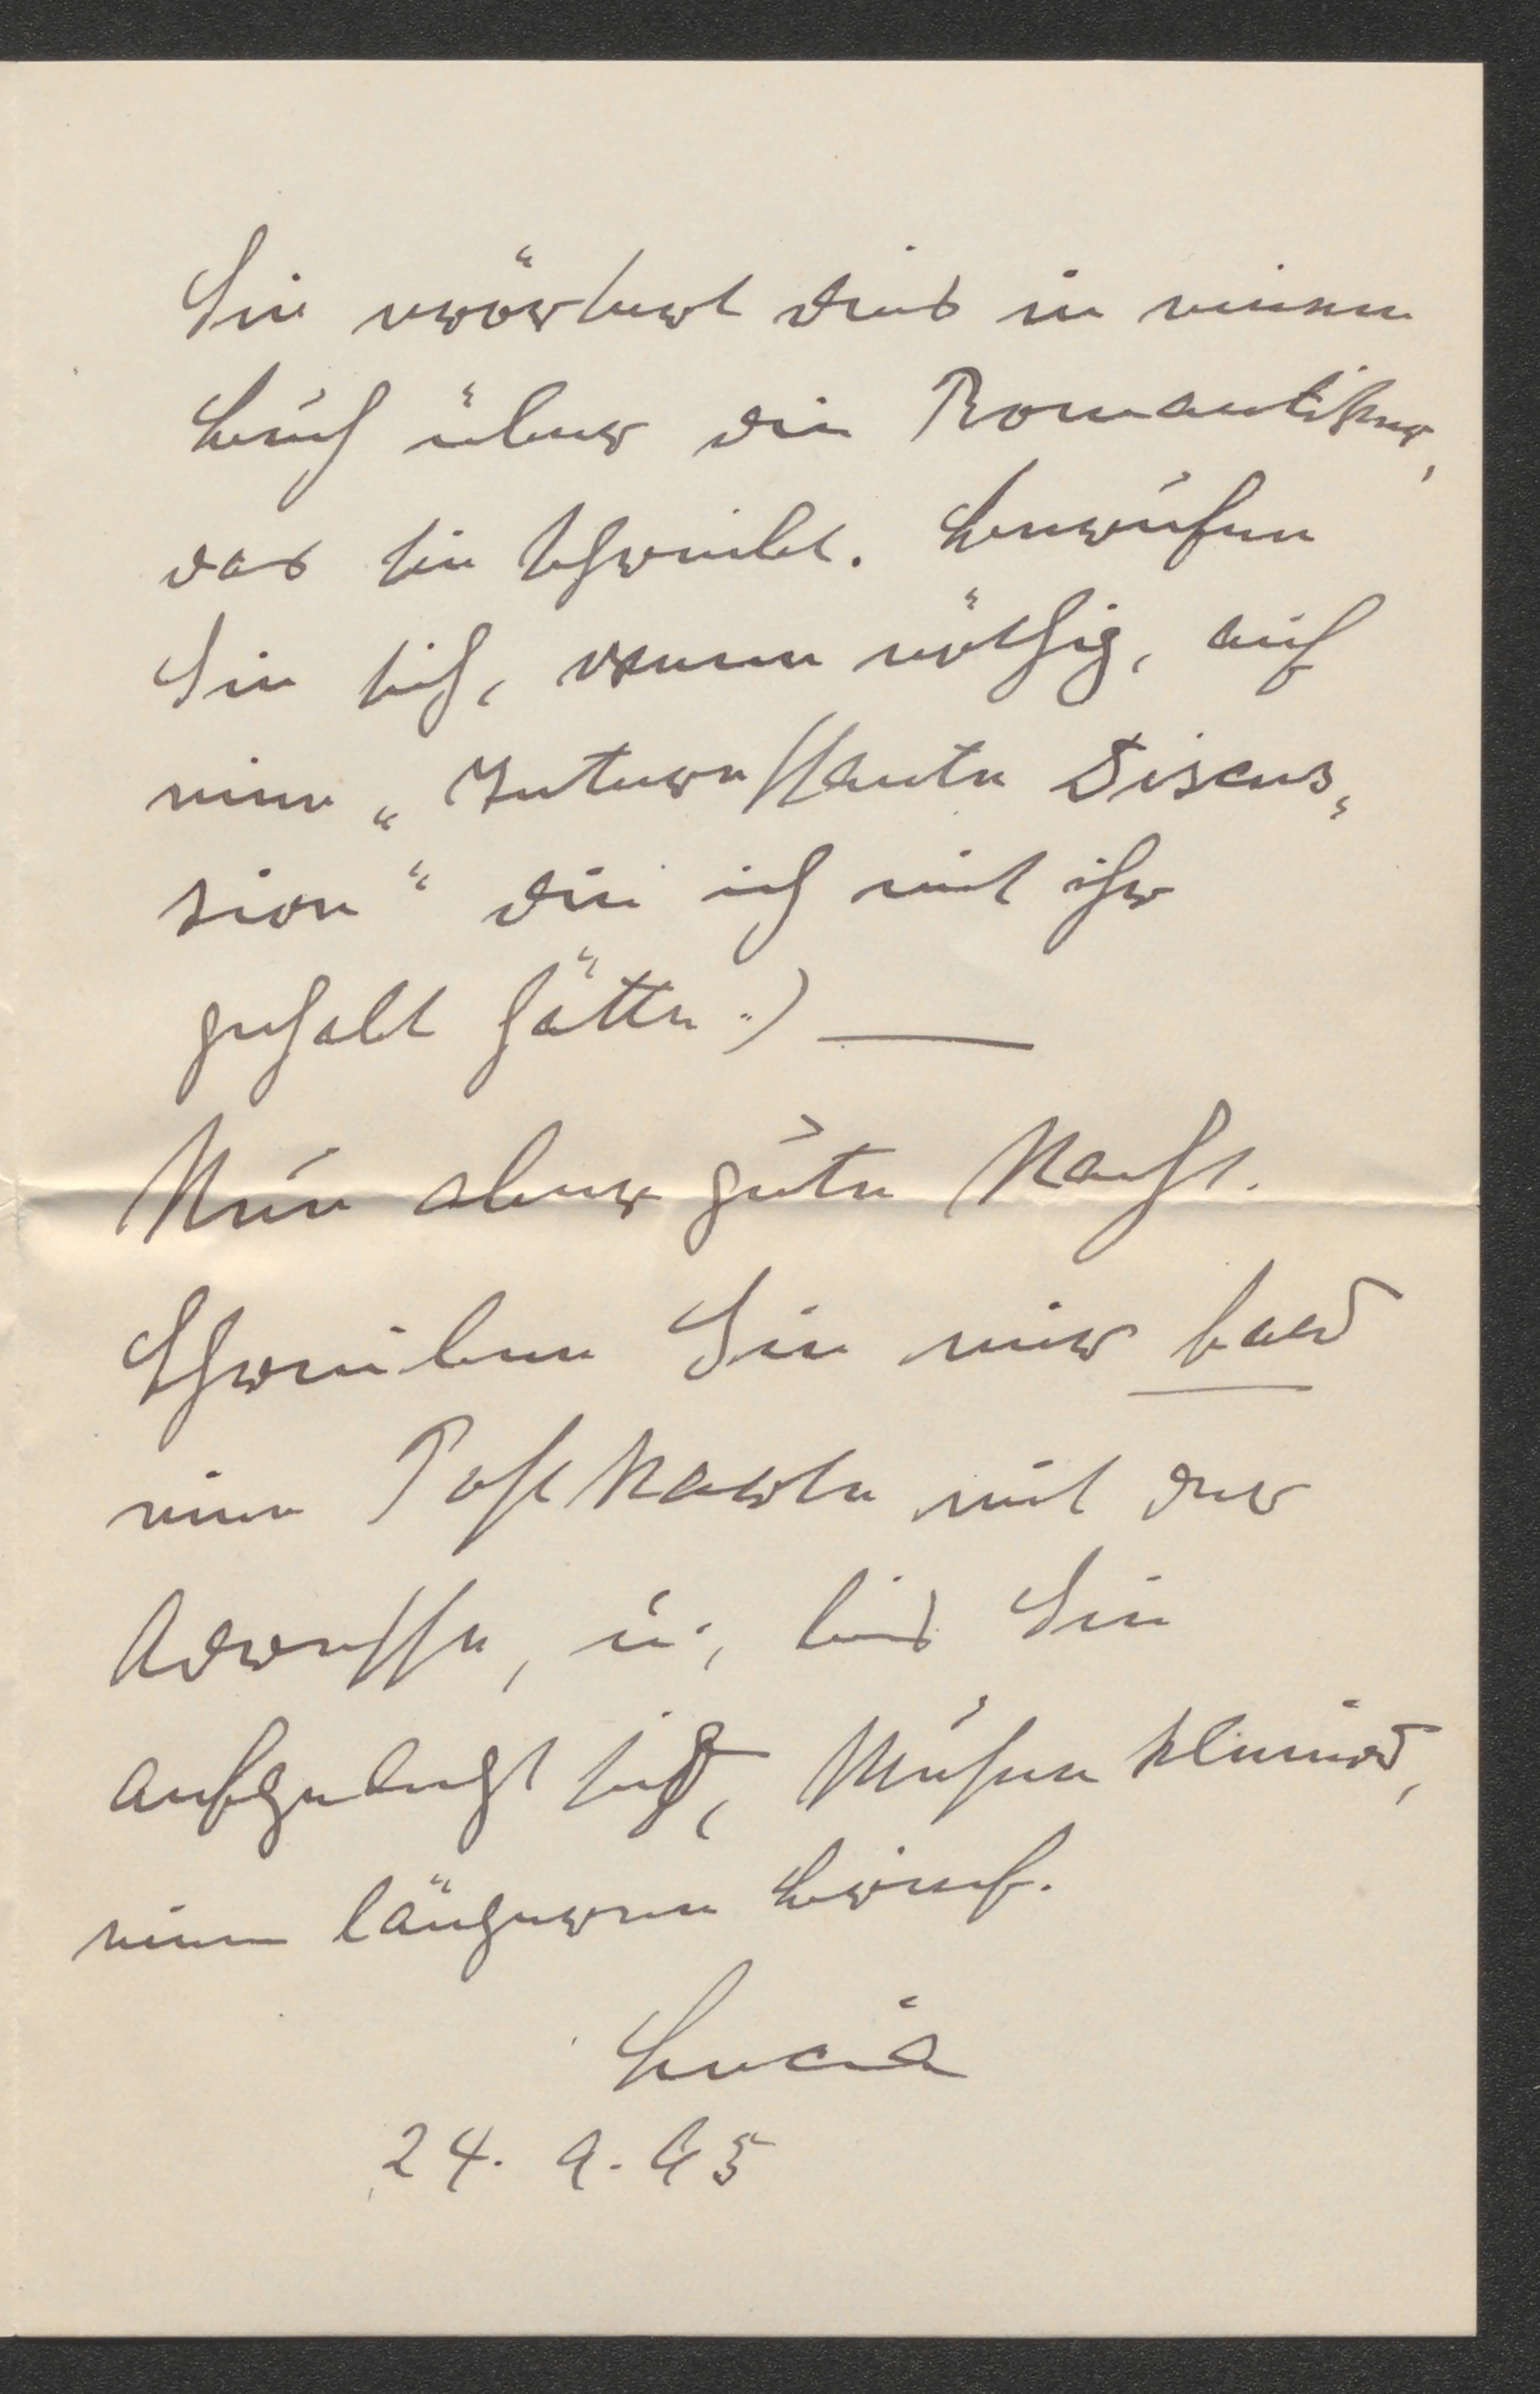 Sie erörtert dies in einem
Buch über die Romantiker,
das sie schreibt. Berufen
Sie sich, wenn nöthig, auf
eine „Interessante Discus„
sion“ die ich mit ihr
gehabt hätte.) —
Nun aber gute Nacht.
Schreiben Sie mir bald
eine Postkarte mit der
Adresse, u., bis Sie
aufgelegt sind,
einen längeren Brief.
Lucia
24. 9. 95